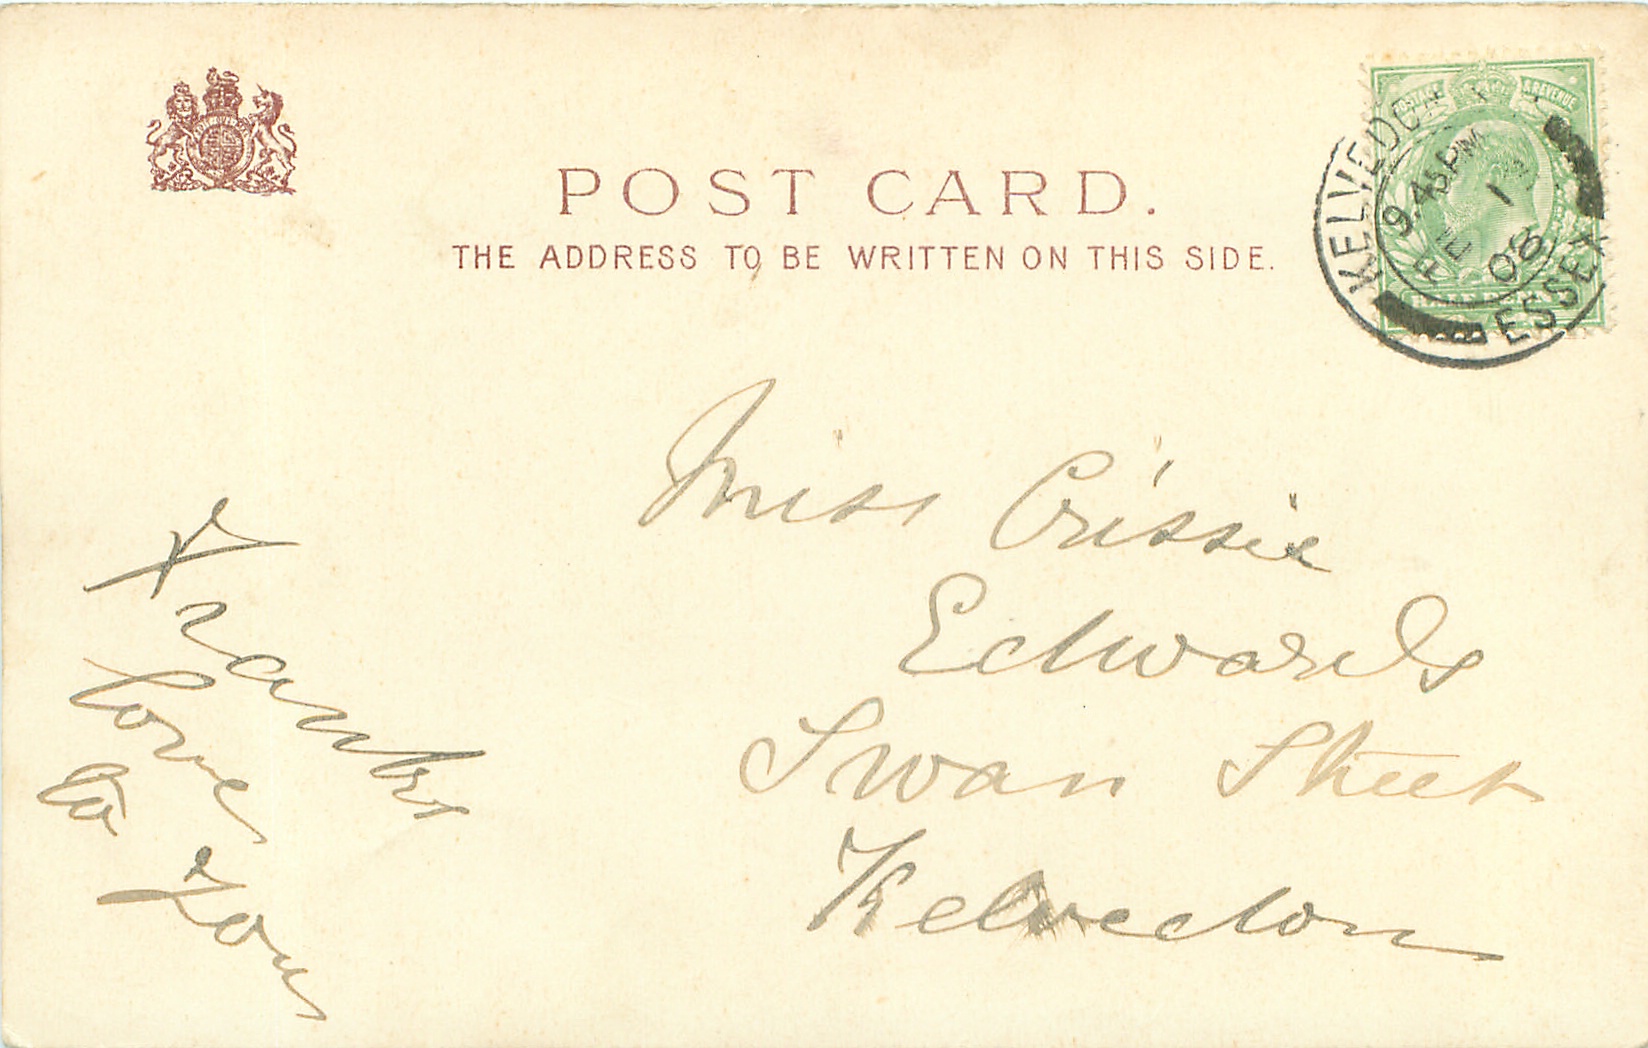 POST CARD.
THE ADDRESS TO BE WRITTEN ON THIS SIDE.
POSTAGE & REVENUE
KELVEDON
9.45PM
FE 1
06
ESSEX
Miss Crissie
Edwards
Swan Street
Kelvedon
Franks
love
to
You